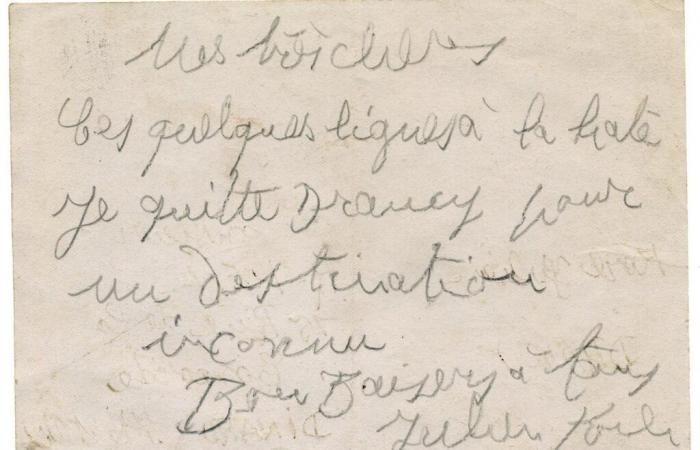 Mes bien chères
Ces quelques lignes à la hate
Je quitte Drancy pour
un destination
inconnu
Bons Baisers à tous
Julien